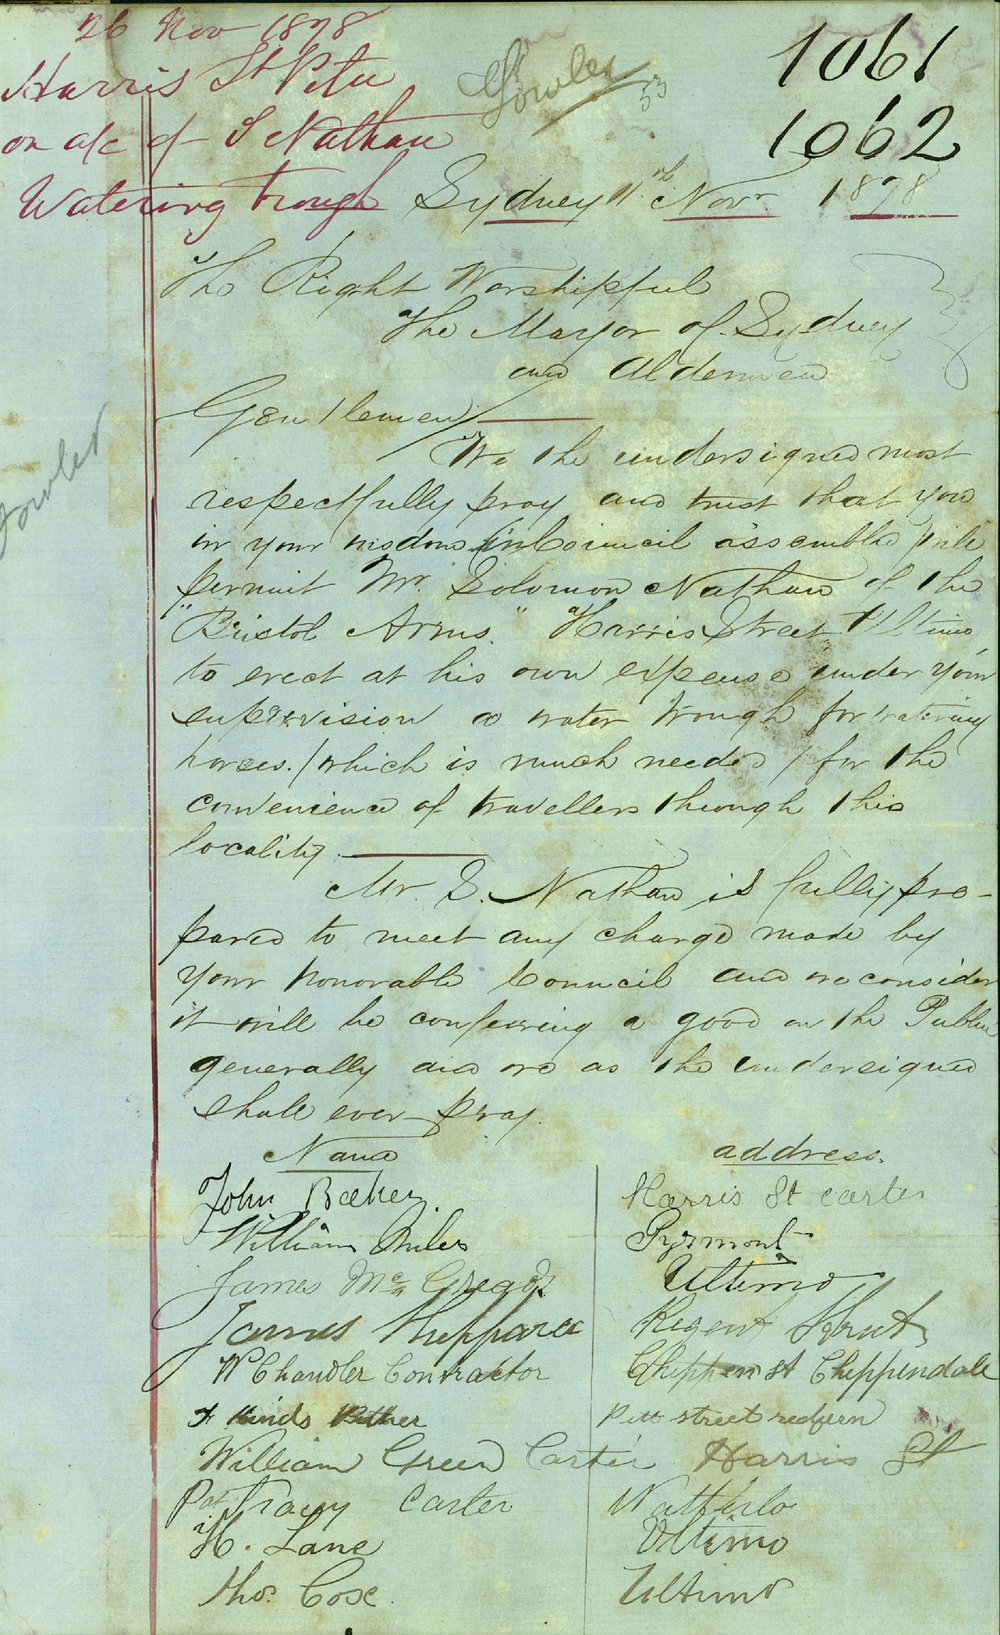 26 Nov 1878
Harris St Peter
on a/c of S Nathan
Watering trough
Fowler
53
1061
1062
Sydney 11th Novr 1878
The Right Worshipful
The Mayor of Sydney
and Aldermen
Gentlemen
We the undersigned most
respectfully pray and trust that you
in your wisdom (in Council assembled) will
permit Mr. Solomon Nathan of the
"Bristol Arms." Harris Street Ultimo,
to erect at his own expense under your
supervision a water trough for watering
horses. (which is much needed) for the
convenience of travellers through this
locality.
Mr. S. Nathan is fully pre-
pared to meet any charge made by
your honorable Council and we consider
it will be conferring a good on the Public
generally and we as the undersigned
shall ever pray.
Fowler
Name address.
John Harris St carter
William Miles Pyrmont
James McGregor Ultimo
James Sheppard Regent Street
W Chandler Contractor Chippen st Chippendale
F Hinds Pitt street redfern
William Green Carter Harris St
Pat Tracey Carter Watterlo
H. Lane Ultimo
Thos. Cox. Ultimo